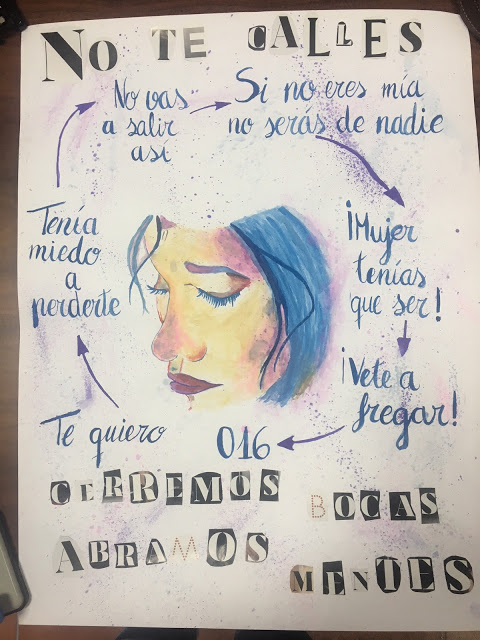 NO TE CALLES
Te quiero
Tenía
miedo
a
perderte
No vas
a salir
así
Si no eres mía
no serás de nadie
¡Mujer
tenías
que ser!
¡Vete a
fregar!
016
CERREMOS BOCAS
ABRAMOS MENTES